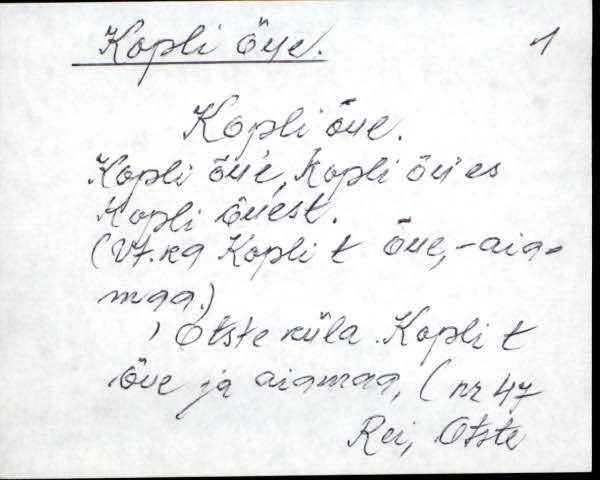 Kopli õue. 1
Kopli õue.
Kopli õu'e, Kopli õu'es
Kopli õuest.
(Vt. ka Kopli t õue, -aia-
maa.)
Otste küla Kopli t
õue ja aiamaa, (nr 47
Rei, Otste